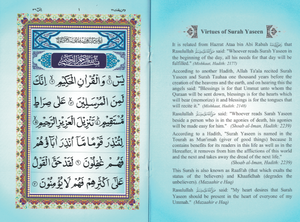 یٰسٓ ۚ وَالْقُرْاٰنِ الْحَكِیْمِ ۙ اِنَّكَ
لَمِنَ الْمُرْسَلِیْنَ ۙ عَلٰی صِرَاطٍ
مُّسْتَقِیْمٍ ؕ تَنْزِیْلَ الْعَزِیْزِ الرَّحِیْمِ ۙ
لِتُنْذِرَ قَوْمًا مَّاۤ اُنْذِرَ اٰبَآؤُهُمْ
فَهُمْ غٰفِلُوْنَ لَقَدْ حَقَّ الْقَوْلُ
عَلٰۤی اَكْثَرِهِمْ فَهُمْ لَا یُؤْمِنُوْنَ
Virtues of Surah Yaseen
It is related from Hazrat Ataa bin Abi Rabah that
Rasulullah said, "Whoever reads Surah Yaseen in
the beginning of the day, all his needs for that day will be
fulfilled." (Mishkaat, Hadith: 2177)
According to another Hadith, Allah Ta'ala recited Surah
Yaseen and Surah Taahaa one thousand years before the
creation of the heavens and earth, and on hearing this the
angels said "Blessings is for that Ummat unto whom the
Quraan will be sent down, blessings is for the hearts which
will bear (memorize) it and blessings is for the tongues that
will recite it." (Mishkaat, Hadith: 2148)
Rasulullah said, "Whoever reads Surah
Yaseen for a person who is in the agonies of death, his agonies
will be made easy for him."
According to a Hadith, "Surah Yaseen is named in the
Towrah as Mun'imah (giver of good things) because it
contains benefits for its readers in this life as well as in the
Hereafter, it removes from him the afflictions of this world
and the next and takes away the dread of the next life."
This Surah is also known as Raafi'ah (that which exalts the
status of the believers) and Khaafidah (degrades the
unbelievers). (Mazaahir-e-Haq)
Rasulullah said: "My heart desires that Surah
Yaseen should be present in the heart of everyone of my
Ummah." (Mazaahir-e-Haq)